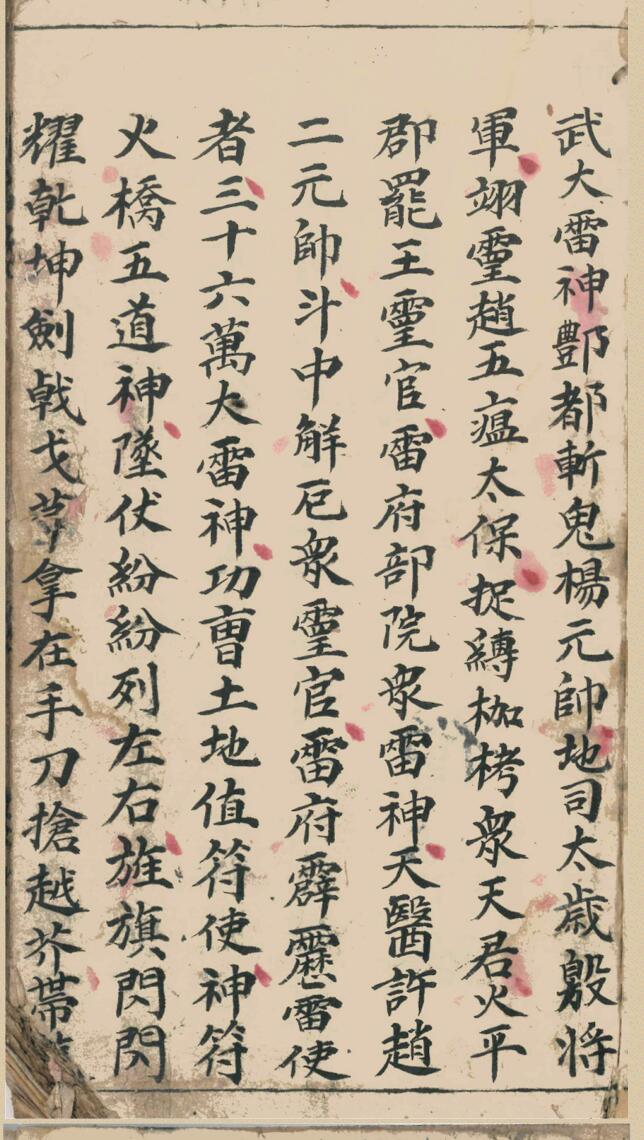 武大雷神酆都斬鬼楊元帥地司太歲殷将
軍翊靈趙五瘟太保捉縛枷栲衆天君火平
郡罷王靈官雷府部院衆雷神天醫許趙
二元帥斗中觧厄衆靈官雷府霹靂雷使
者三十六萬大雷神功曺土地值符使神符
火橋五道神墜伏紛紛列左右旌旗閃閃
耀乾坤劍戟戈 拿在手刀搶越斧帶